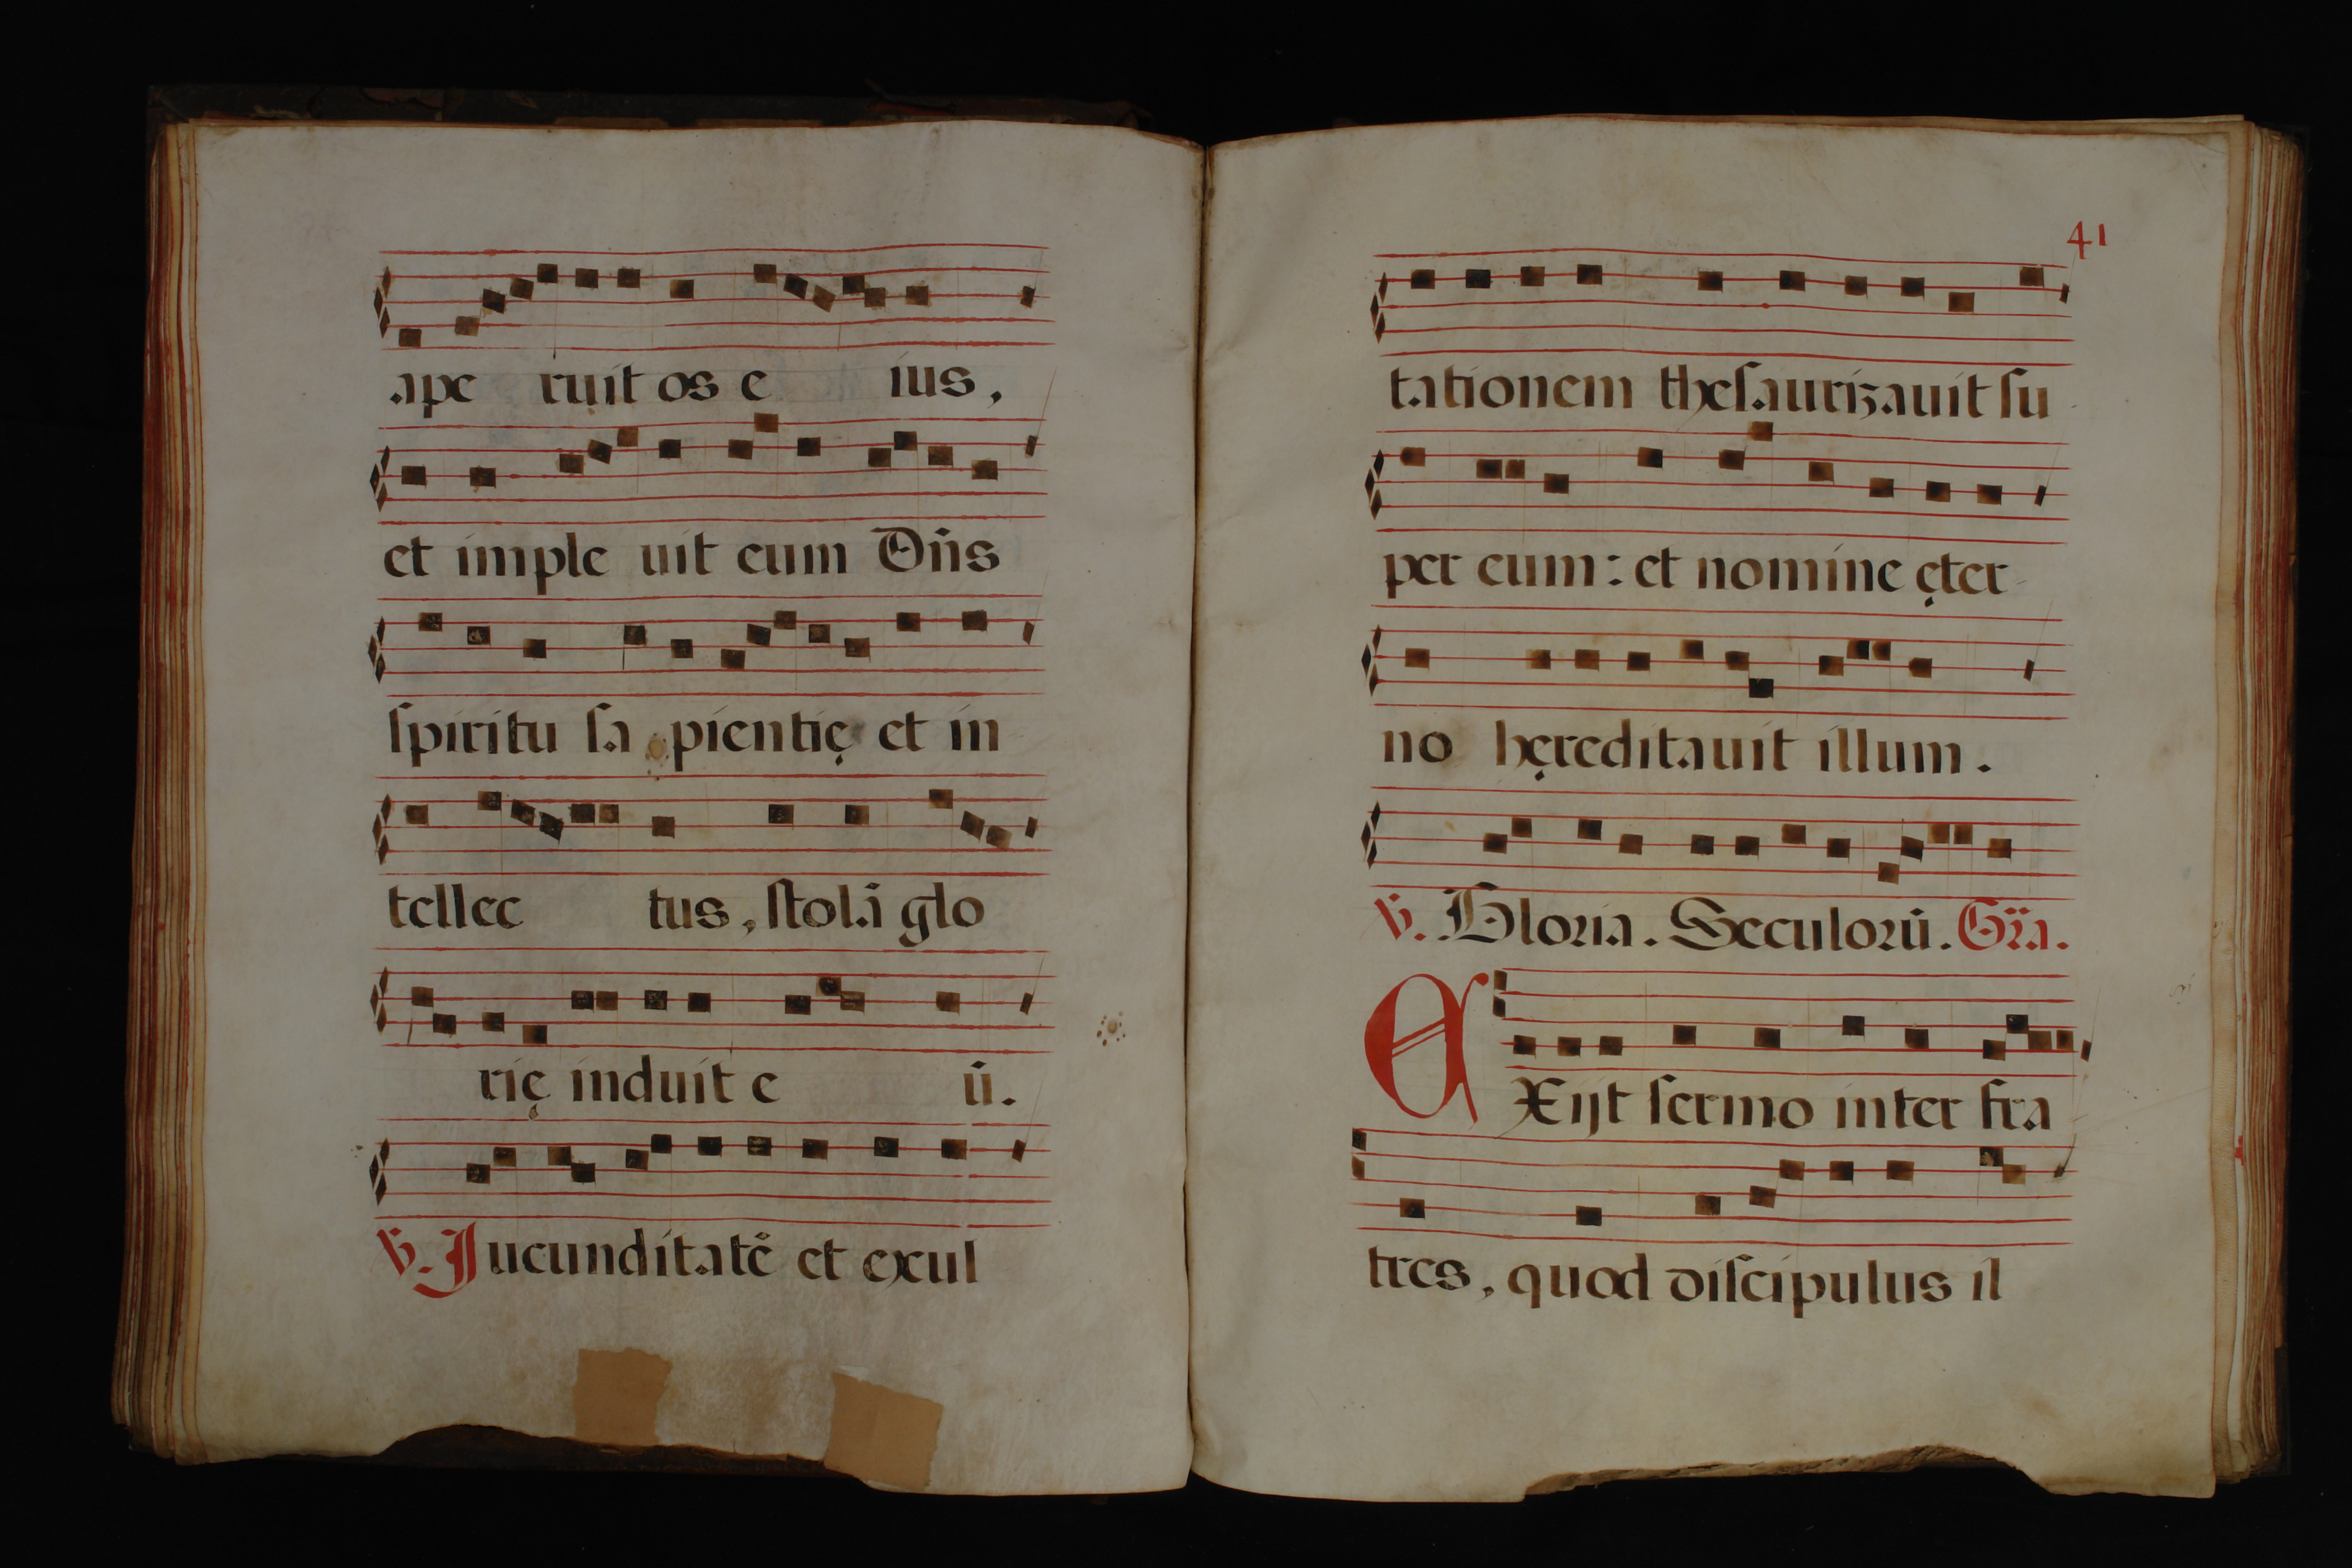 ape ruit os e ius,
et imple uit eum Dn̄s
ſpiritu ſa pientię et in
tellec tus, ſtolā glo
rię induit e ū.
V. Jucunditatē et exul
41
tationem theſauriʒauit ſu
per eum: et nomine ęter
no hęreditauit illum.
V. Gloria. Seculorū. Gr̄a.
EXijt ſermo inter fra
tres, quod diſcipulus il